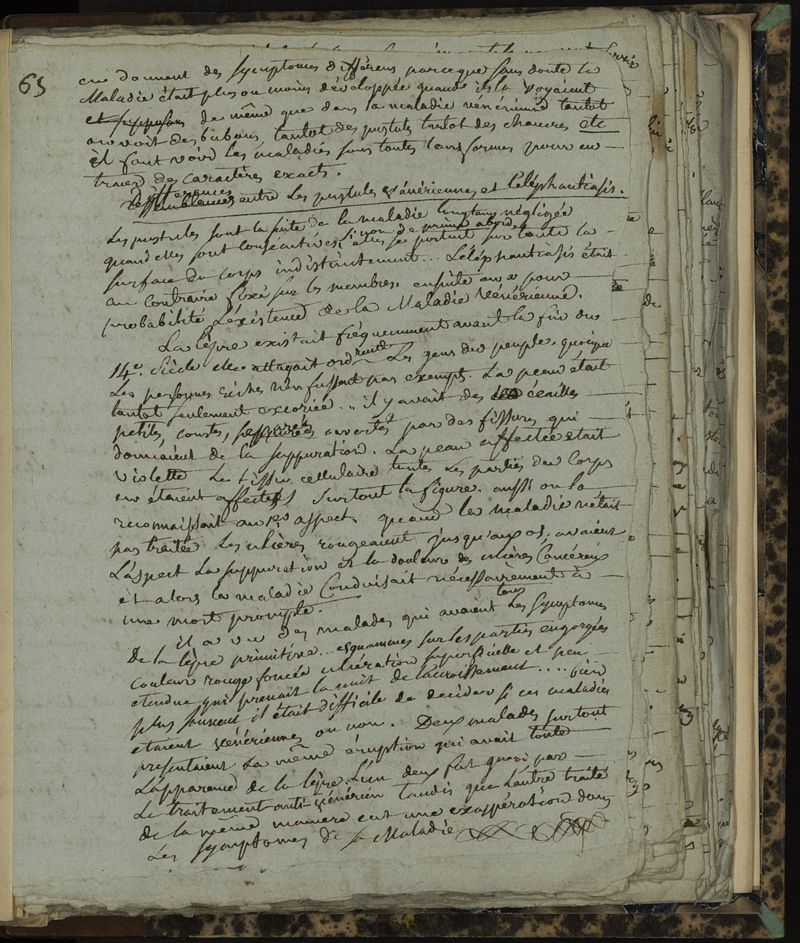 65
en donnent des symptomes différens parceque sans doute la
Maladie était plus ou moins développée quand ils la voyaient
et supposons de même que dans la maladie vénérienne tantot
on voit des bubons, tantot des pustules tantot des chancres etc
il faut voir les maladies sous toutes leurs formes pour en
tracer des caractères exacts.
différences
ressemblances entre les pustules vénériennes et l'éléphantiasis.
Les pustules sont la suite de la maladie longtems négligée
quand elles sont consécutives, si non de prime abord
elles se portent sur toute la
surface du corps indistinctement... L'éléphantiasis était
au contraire fixé sur les membres. ensuite on a pour
probabilité l'existence de la Maladie Vénérienne.
La lèpre existait fréquemment avant la fin du
14e. siècle elle attaquait ordrement les gens du peuple, quoique
les personnes riches n'en fussent pas exempts. La peau était
tantot seulement excoriée... il y avait des écailles
petites, courtes, ouvertes par des fissures qui
donnaient de la suppuration. La peau affectée était
violette Le tissu cellulaire toutes les parties du Corps
en étaient affectées surtout la figure. aussi on la
reconnaissait au 1er aspect. quand la maladie n'était
pas traitée les ulcères rongeaient jusqu'aux os, avaient
L'aspect La suppuration et la douleur des ulcères Cancéreux
et alors la maladie Conduisait nécessairement à
une mort prompte.
il a vu des malades qui avaient tous les symptomes
De la lèpre primitive... esquammes sur les parties engorgées
couleur rouge foncée ulcération superficielle et peu
étendue qui prenait la nuit de l'accroissement.... bien
plus souvent il était difficile de décider si ces maladies
etaient vénériennes ou non. Deux malades surtout
présentaient la même éruption qui avait toute
L'apparence de la lèpre. L'un deux fut guéri par
Le traitement anti-vénérien tandis que l'autre traité
de la même manière eut une exaspération dans
Les symptomes de sa Maladie